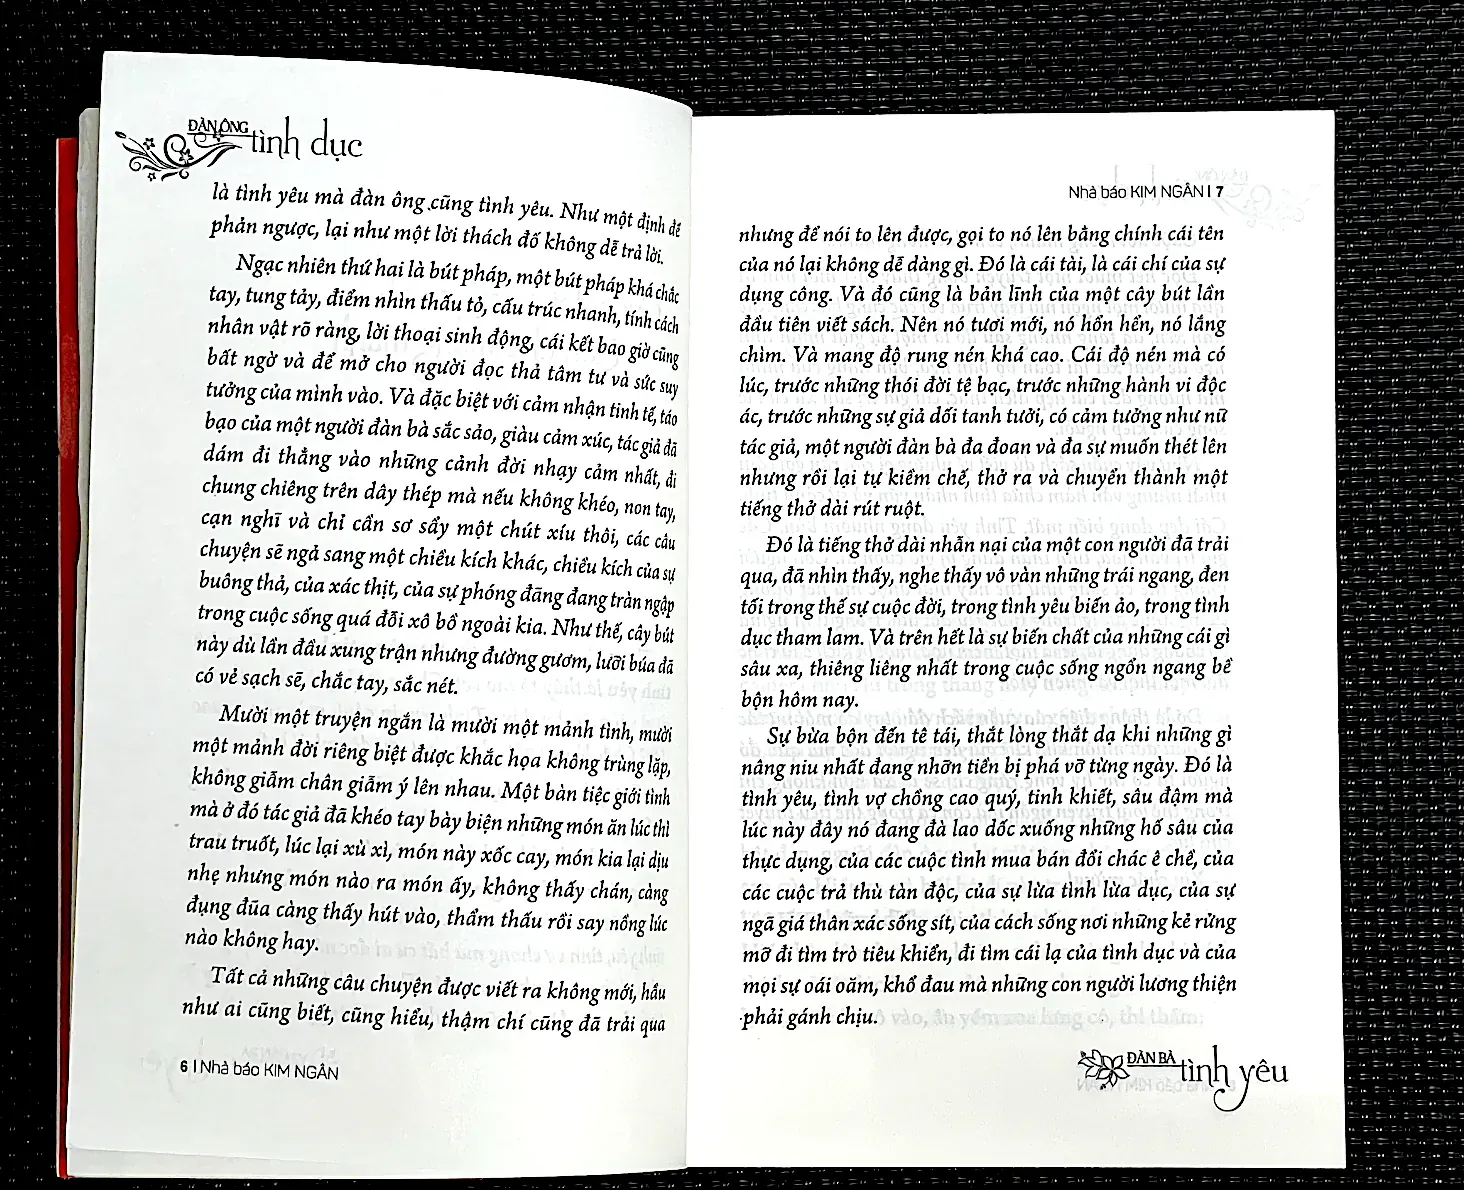 ĐÀN ÔNG
tình dục
là tình yêu mà đàn ông cũng tình yêu. Như một định đề
phản ngược, lại như một lời thách đố không dễ trả lời.
Ngạc nhiên thứ hai là bút pháp, một bút pháp khá chắc
tay, tung tẩy, điểm nhìn thấu tỏ, cấu trúc nhanh, tính cách
nhân vật rõ ràng, lời thoại sinh động, cái kết bao giờ cũng
bất ngờ và để mở cho người đọc thả tâm tư và sức suy
tưởng của mình vào. Và đặc biệt với cảm nhận tinh tế, táo
bạo của một người đàn bà sắc sảo, giàu cảm xúc, tác giả đã
dám đi thẳng vào những cảnh đời nhạy cảm nhất, đi
chung chiêng trên dây thép mà nếu không khéo, non tay,
cạn nghĩ và chỉ cần sơ sẩy một chút xíu thôi, các câu
chuyện sẽ ngả sang một chiều kích khác, chiều kích của sự
buông thả, của xác thịt, của sự phóng đãng đang tràn ngập
trong cuộc sống quá đỗi xô bồ ngoài kia. Như thế, cây bút
này dù lần đầu xung trận nhưng đường gươm, lưỡi búa đã
có vẻ sạch sẽ, chắc tay, sắc nét.
Mười một truyện ngắn là mười một mảnh tình, mười
một mảnh đời riêng biệt được khắc họa không trùng lặp,
không giẫm chân giẫm ý lên nhau. Một bàn tiệc giới tình
mà ở đó tác giả đã khéo tay bày biện những món ăn lúc thì
trau truốt, lúc lại xù xì, món này xốc cay, món kia lại dịu
nhẹ nhưng món nào ra món ấy, không thấy chán, càng
đụng đũa càng thấy hút vào, thẩm thấu rồi say nồng lúc
nào không hay.
Tất cả những câu chuyện được viết ra không mới, hầu
như ai cũng biết, cũng hiểu, thậm chí cũng đã trải qua
6 I Nhà báo KIM NGÂN
Nhà báo KIM NGÂN I 7
nhưng để nói to lên được, gọi to nó lên bằng chính cái tên
của nó lại không dễ dàng gì. Đó là cái tài, là cái chí của sự
dụng công. Và đó cũng là bản lĩnh của một cây bút lần
đầu tiên viết sách. Nên nó tươi mới, nó hổn hển, nó lắng
chìm. Và mang độ rung nén khá cao. Cái độ nén mà có
lúc, trước những thói đời tệ bạc, trước những hành vi độc
ác, trước những sự giả dối tanh tưởi, có cảm tưởng như nữ
tác giả, một người đàn bà đa đoan và đa sự muốn thét lên
nhưng rồi lại tự kiềm chế, thở ra và chuyển thành một
tiếng thở dài rút ruột.
Đó là tiếng thở dài nhẫn nại của một con người đã trải
qua, đã nhìn thấy, nghe thấy vô vàn những trái ngang, đen
tối trong thế sự cuộc đời, trong tình yêu biến ảo, trong tình
dục tham lam. Và trên hết là sự biến chất của những cái gì
sâu xa, thiêng liêng nhất trong cuộc sống ngổn ngang bề
bộn hôm nay.
Sự bừa bộn đến tê tái, thắt lòng thắt dạ khi những gì
nâng niu nhất đang nhỡn tiền bị phá vỡ từng ngày. Đó là
tình yêu, tình vợ chồng cao quý, tinh khiết, sâu đậm mà
lúc này đây nó đang đà lao dốc xuống những hố sâu của
thực dụng, của các cuộc tình mua bán đổi chác ê chề, của
các cuộc trả thù tàn độc, của sự lừa tình lừa dục, của sự
ngã giá thân xác sống sít, của cách sống nơi những kẻ rửng
mỡ đi tìm trò tiêu khiển, đi tìm cái lạ của tình dục và của
mọi sự oái oăm, khổ đau mà những con người lương thiện
phải gánh chịu.
ĐÀN BÀ
tình yêu